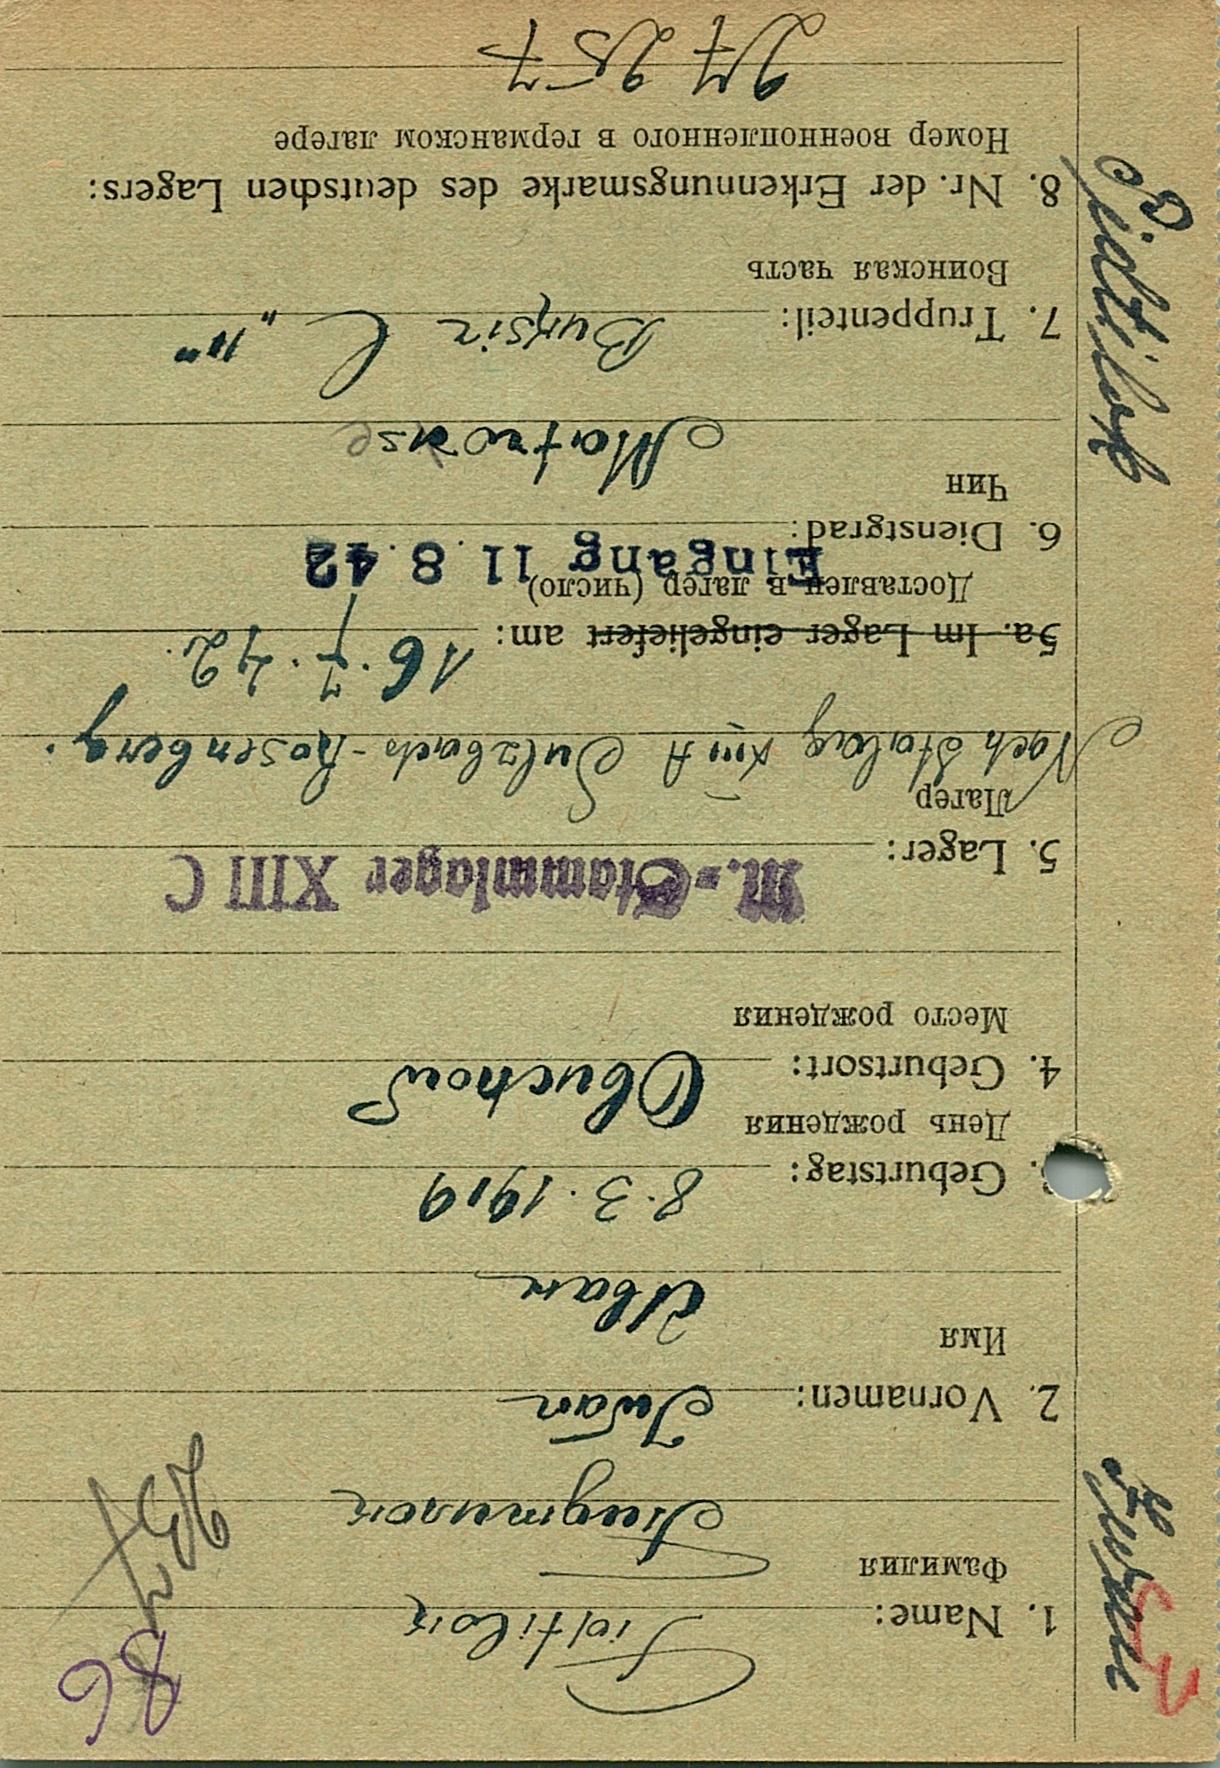 1. Name: Tidtilok
Фамилия
2. Vornamen: Iwan
Имя
Иван
Geburtstag: 8.3.1919
День рождения
4. Geburtsort: Obuchow
Место рождения
M.=Stammlager XIII C
5. Lager:
Лагер
Nach Stalag XIII A Sulzbach-Rosenberg.
5a. Im Lager eingeliefert am: 16.7.42.
Доставлен в лагер (число)
Eingang 11.8.42
6. Dienstgrad:
Чин
Matrose
7. Truppenteil:
Воинская часть
8. Nr. der Erkennungsmarke des deutschen Lagers:
Номер военнопленного в германском лагере
27257
Iwan
86